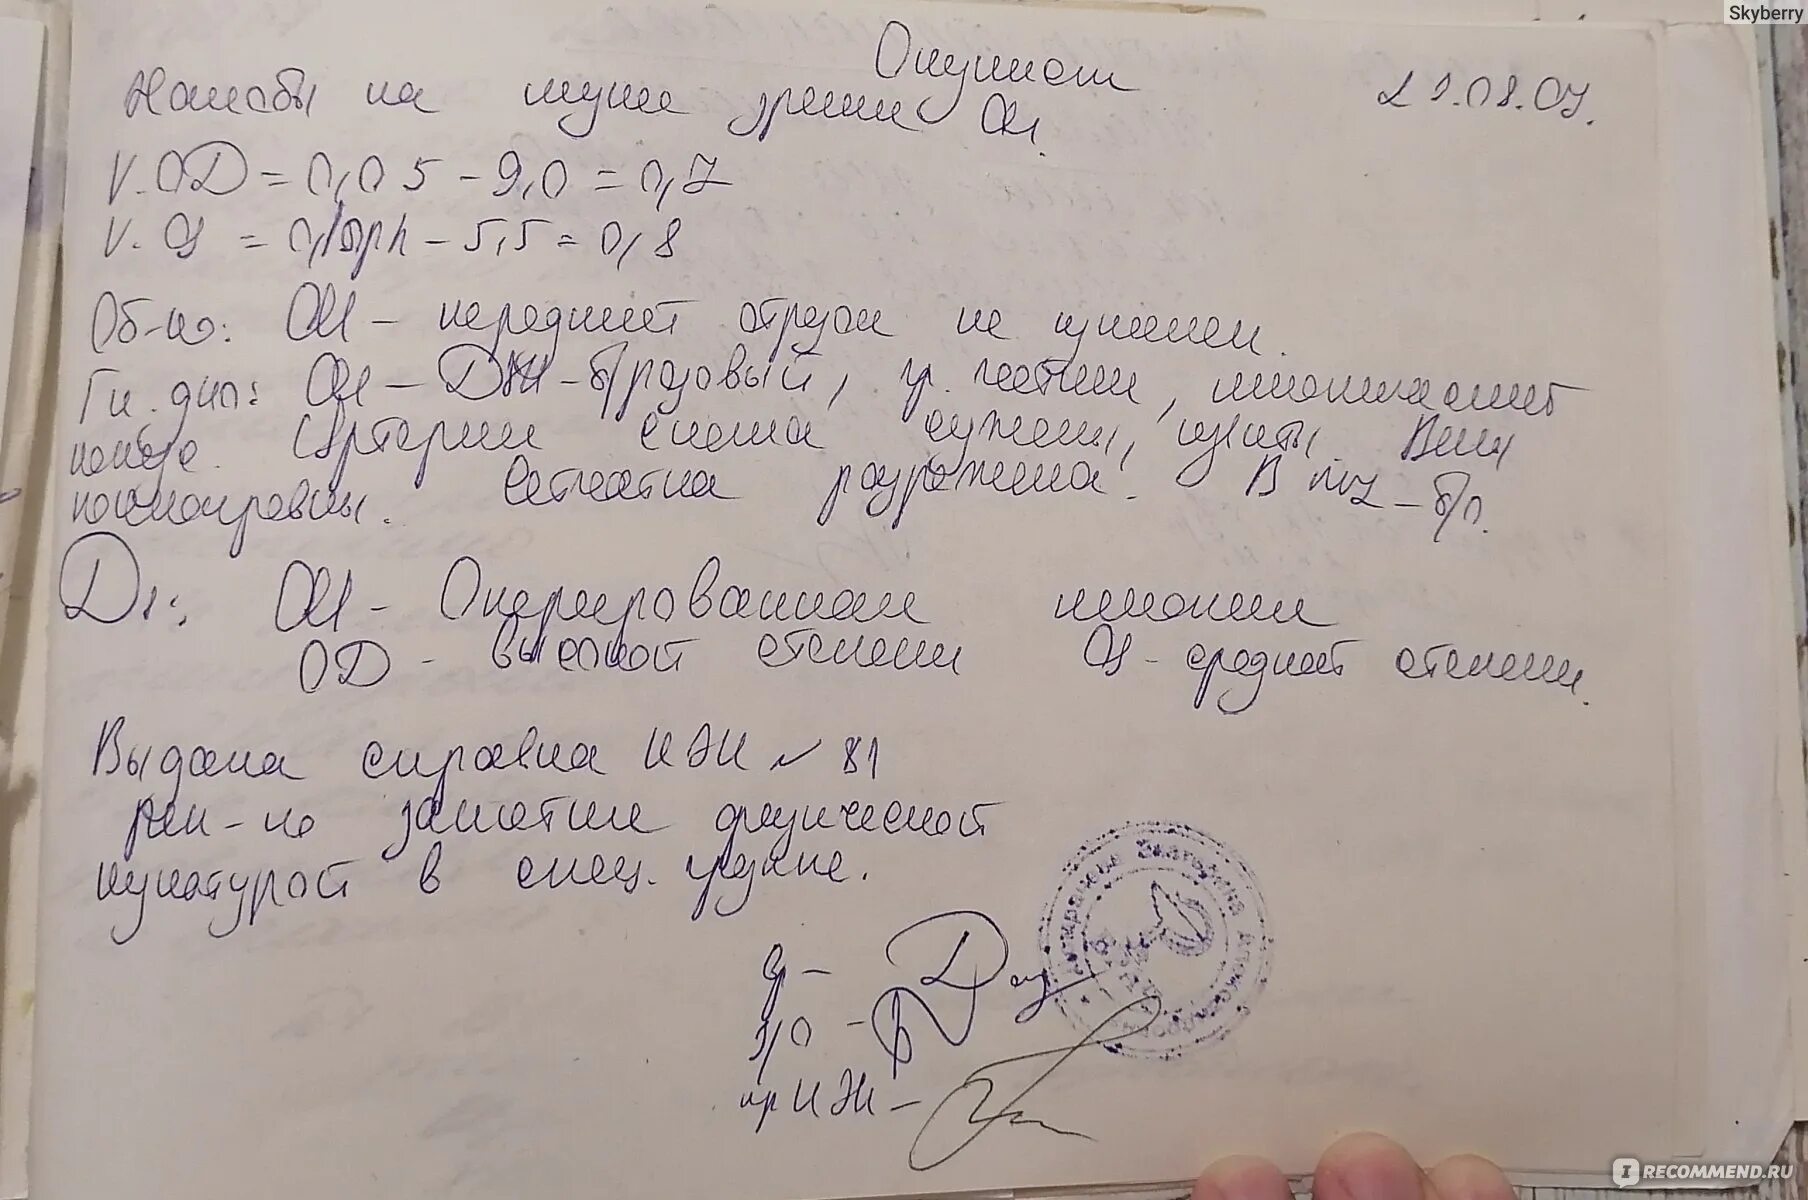 Skyberry
Окулист
21.08.07.
Жалобы на плохое зрение OU.
V.OD = 0,05 -9,0 = 0,7
V.OS = 0,1 -5,5 = 0,8
Об-но: OU – передний отрезок не изменен.
Гл. дно: OU – ДЗН – б/розовый, гр. четкие, миопический
конус. Артерии слегка сужены, извиты. Вены
полнокровны. Сетчатка разрежена. В mz – б/п.
Ds: OU – Оперированная миопия
OD – высокой степени OS – средней степени.
Выдана справка КЭК № 81
рек-но занятие физической
культурой в спец. группе.
з/о –
пр КЭК –
IRECOMMEND.RU